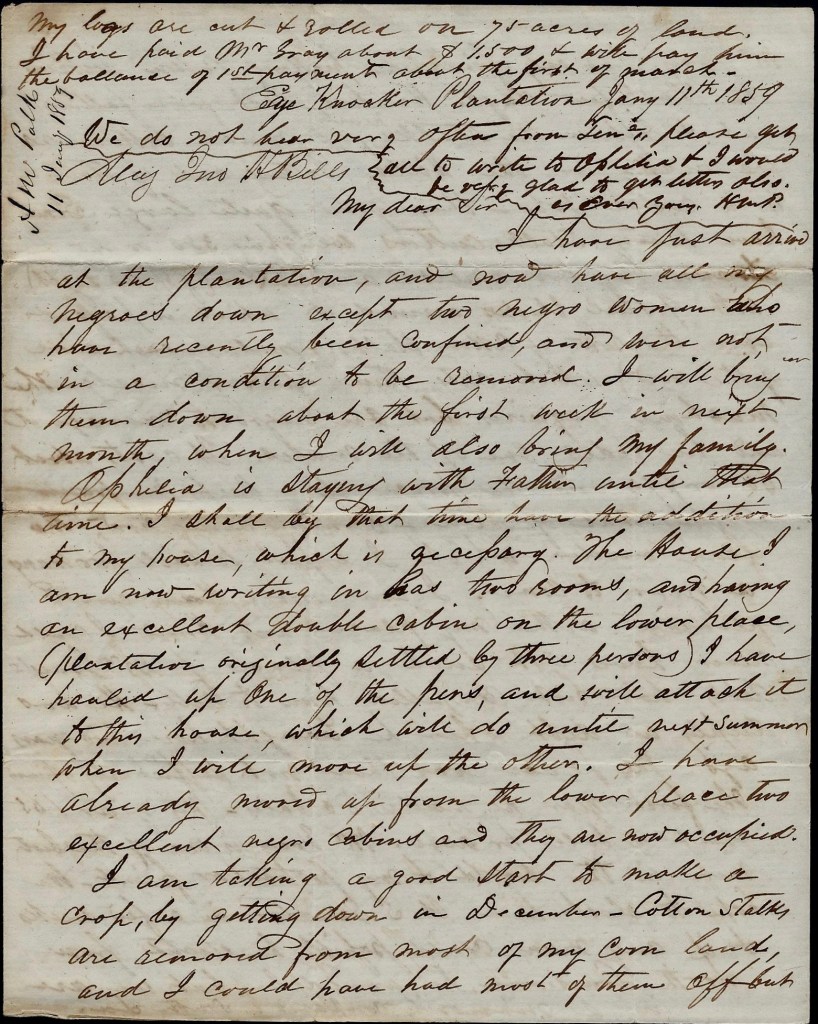 My logs are cut & rolled on 75 acres of land.
I have paid Mr Gray about $1.500, & will pay him
the ballance of 1st payment about the first of march -
Eye Knocker Plantation Jany 11th 1859
A M Polk
11 Jany 1859
We do not hear very often from Tenn, please get
Maj Jno H Bills
all to write to Ophelia & I would
be very glad to get letters also.
My dear Sir
as ever yours. H M P.
I have just arrived
at the plantation, and now have all my
negroes down except two negro women who
have recently been confined, and were not
in a condition to be removed. I will bring
them down about the first week in next
month, when I will also bring my family.
Ophelia is staying with Father until that
time. I shall by that time have the addition
to my house, which is necessary. The House I
am now writing in has two rooms, and having
an excellent double cabin on the lower place,
(plantation originally settled by three persons) I have
hauled up one of the pens, and will attach it
to this house, which will do until next summer
when I will move up the other. I have
already moved up from the lower place two
excellent negro Cabins and they are now occupied.
I am taking a good start to make a
crop, by getting down in December - Cotton Stalks
are removed from most of my corn land,
and I could have had most of them off but